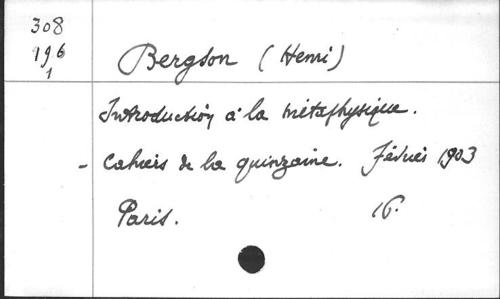 308
196
1
Bergson (Henri)
Introduction à la métaphysique.
- Cahiers de la quinzaine. Février 1903
Paris. 16.